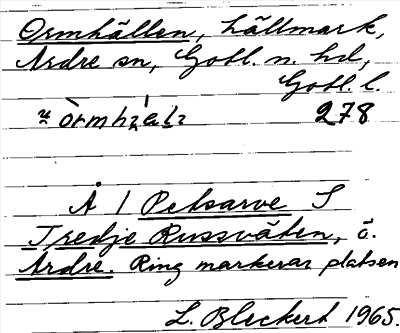 Ormhällen, hällmark,
Ardre sn, Gotl. n. hd,
Gotl. l.
278
Å / Petsarve S
Tredje Russväten, ö.
Ardre. Ring markerar platsen
L. Bleckert 1965.